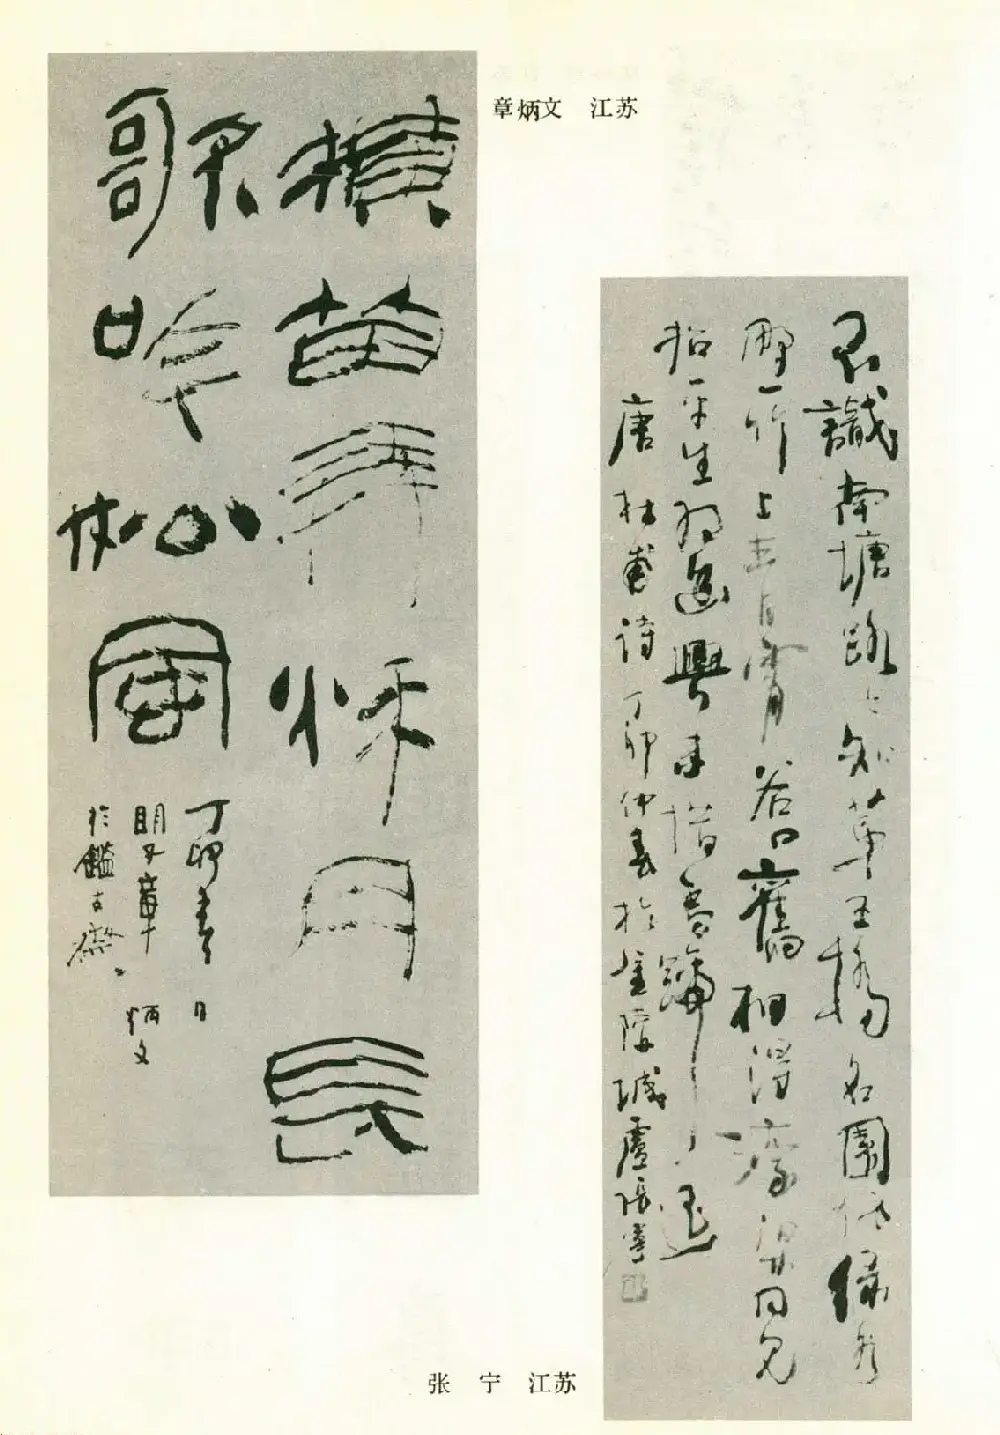 章炳文 江苏
橫笛弄秋月長
歌吟松風
丁卯春日
章炳文
於鑑古
不識南塘路今知第五橋名園依綠水
野竹上青霄谷口舊相得濠梁同見
招平生為幽興未惜馬蹄遙
唐杜甫诗丁卯仲春於金陵張寧
张 宁 江苏